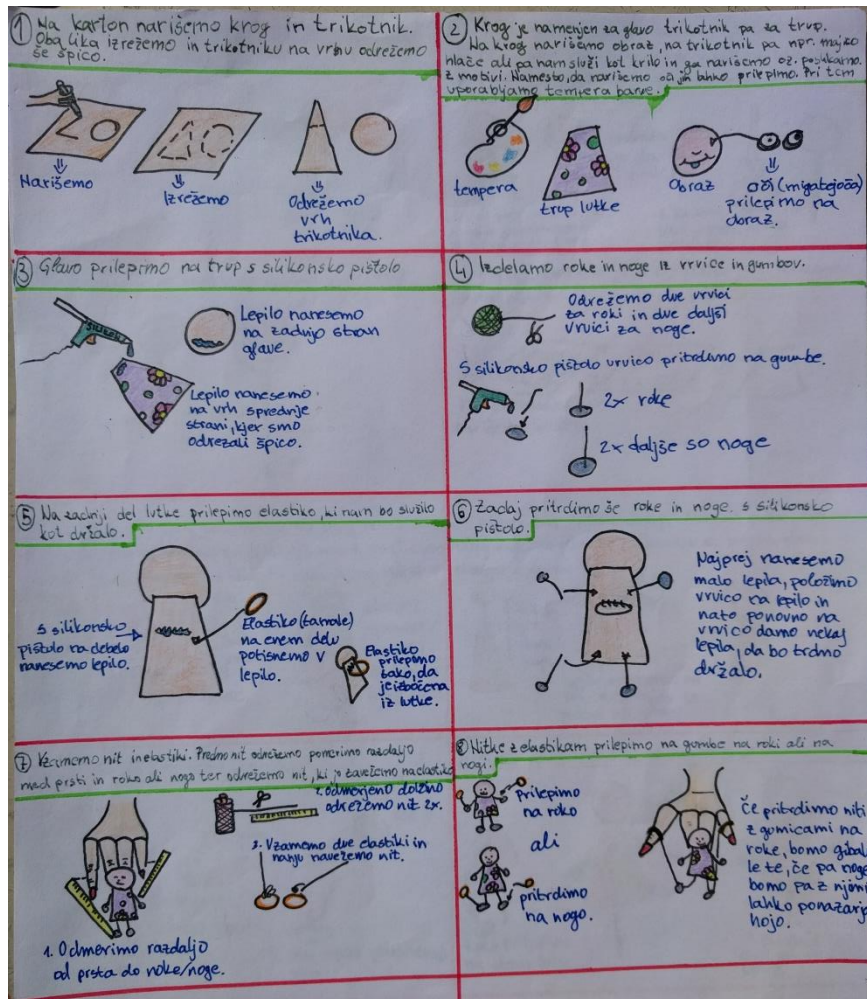 ① Na karton narišemo krog in trikotnik.
Oba lika izrežemo in trikotniku na vrhu odrežemo
še špico.
Narišemo
Izrežemo
Odrežemo
vrh
trikotnika.
② Krog je namenjen za glavo trikotnik pa za trup.
Na krog narišemo obraz, na trikotnik pa npr. majico
hlače ali pa nam služi kot krilo in ga narišemo oz.
z motivi. Namesto, da narišemo oči jih lahko prilepimo. Pri tem
uporabljamo tempera barve.
tempera
trup lutke
Obraz
oči (migatajoča)
prilepimo na
obraz.
③ Glavo prilepimo na trup s silikonsko pištolo
SILIKON
Lepilo nanesemo
na zadnjo stran
glave.
Lepilo nanesemo
na vrh sprednje
strani, kjer smo
odrezali špico.
④ Izdelamo roke in noge iz vrvice in gumbov.
Odrežemo dve vrvici
za roki in dve daljši
vrvici za noge.
S silikonsko pištolo vrvico pritrdimo na gumbe.
2x roke
2x daljše so noge
⑤ Na zadnji del lutke prilepimo elastiko, ki nam bo služilo
kot držalo.
S silikonsko
pištolo na debelo
nanesemo lepilo.
Elastiko (ta male)
na enem delu
potisnemo v
lepilo.
Elastiko
prilepimo
tako, da
je izbočena
iz lutke.
⑥ Zadaj pritrdimo še roke in noge s silikonsko
pištolo.
Najprej nanesemo
malo lepila, položimo
vrvico na lepilo in
nato ponovno na
vrvico damo nekaj
lepila, da bo trdno
držalo.
⑦ Vzamemo nit in elastiki. Predno nit odrežemo pomerimo razdaljo
med prsti in roko ali nogo ter odrežemo nit, ki jo zavežemo na elastiko
1. Odmerimo razdaljo
od prsta do roke/noge.
2. odmerjeno dolžino
odrežemo nit 2x.
3. Vzamemo dve elastiki in
nanju navežemo nit.
⑧ Nitke z elastikam prilepimo na gumbe na roki ali na
nogi.
Prilepimo
na roko
ali
pritrdimo
na nogo.
Če pritrdimo niti
z gumicami na
roke, bomo gibal
le te, če pa noge
bomo pa z njimi
lahko ponazarja
hojo.